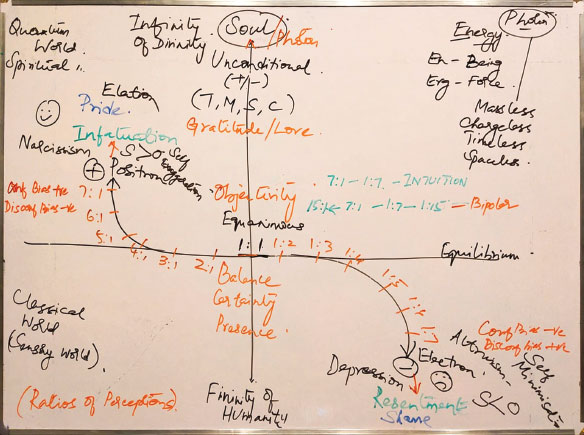 Quantum
World
Spiritual "
Infinity
of Divinity
Soul / Photon
Unconditional
(+/-)
(T, M, S, C)
Gratitude/Love
Photon
Energy
En - Being
Erg - Force
Massless
Chargeless
Timeless
Spaceless
Elation
Pride
Infatuation
Narcissism
S > O Self
Exaggeration
+
Positron
Conf Bias +ve
Disconf Bias -ve
7:1
6:1
5:1
4:1
3:1
2:1
Objectivity
Equanimous
1:1
1:2
1:3
1:4
1:5
1:6
1:7
7:1 - 1:7 - INTUITION
15:1 ← 7:1 - 1:7 → 1:15 - Bipolar
Equilibrium
Balance
Certainty
Presence
Classical
World
(Sensory World)
(Ratios of Perceptions)
Fininity of
Humanity
Depression
-
Electron
Resentment
Shame
Conf Bias -ve
Disconf bias +ve
Altruism -
Self
Minimisation
S < O